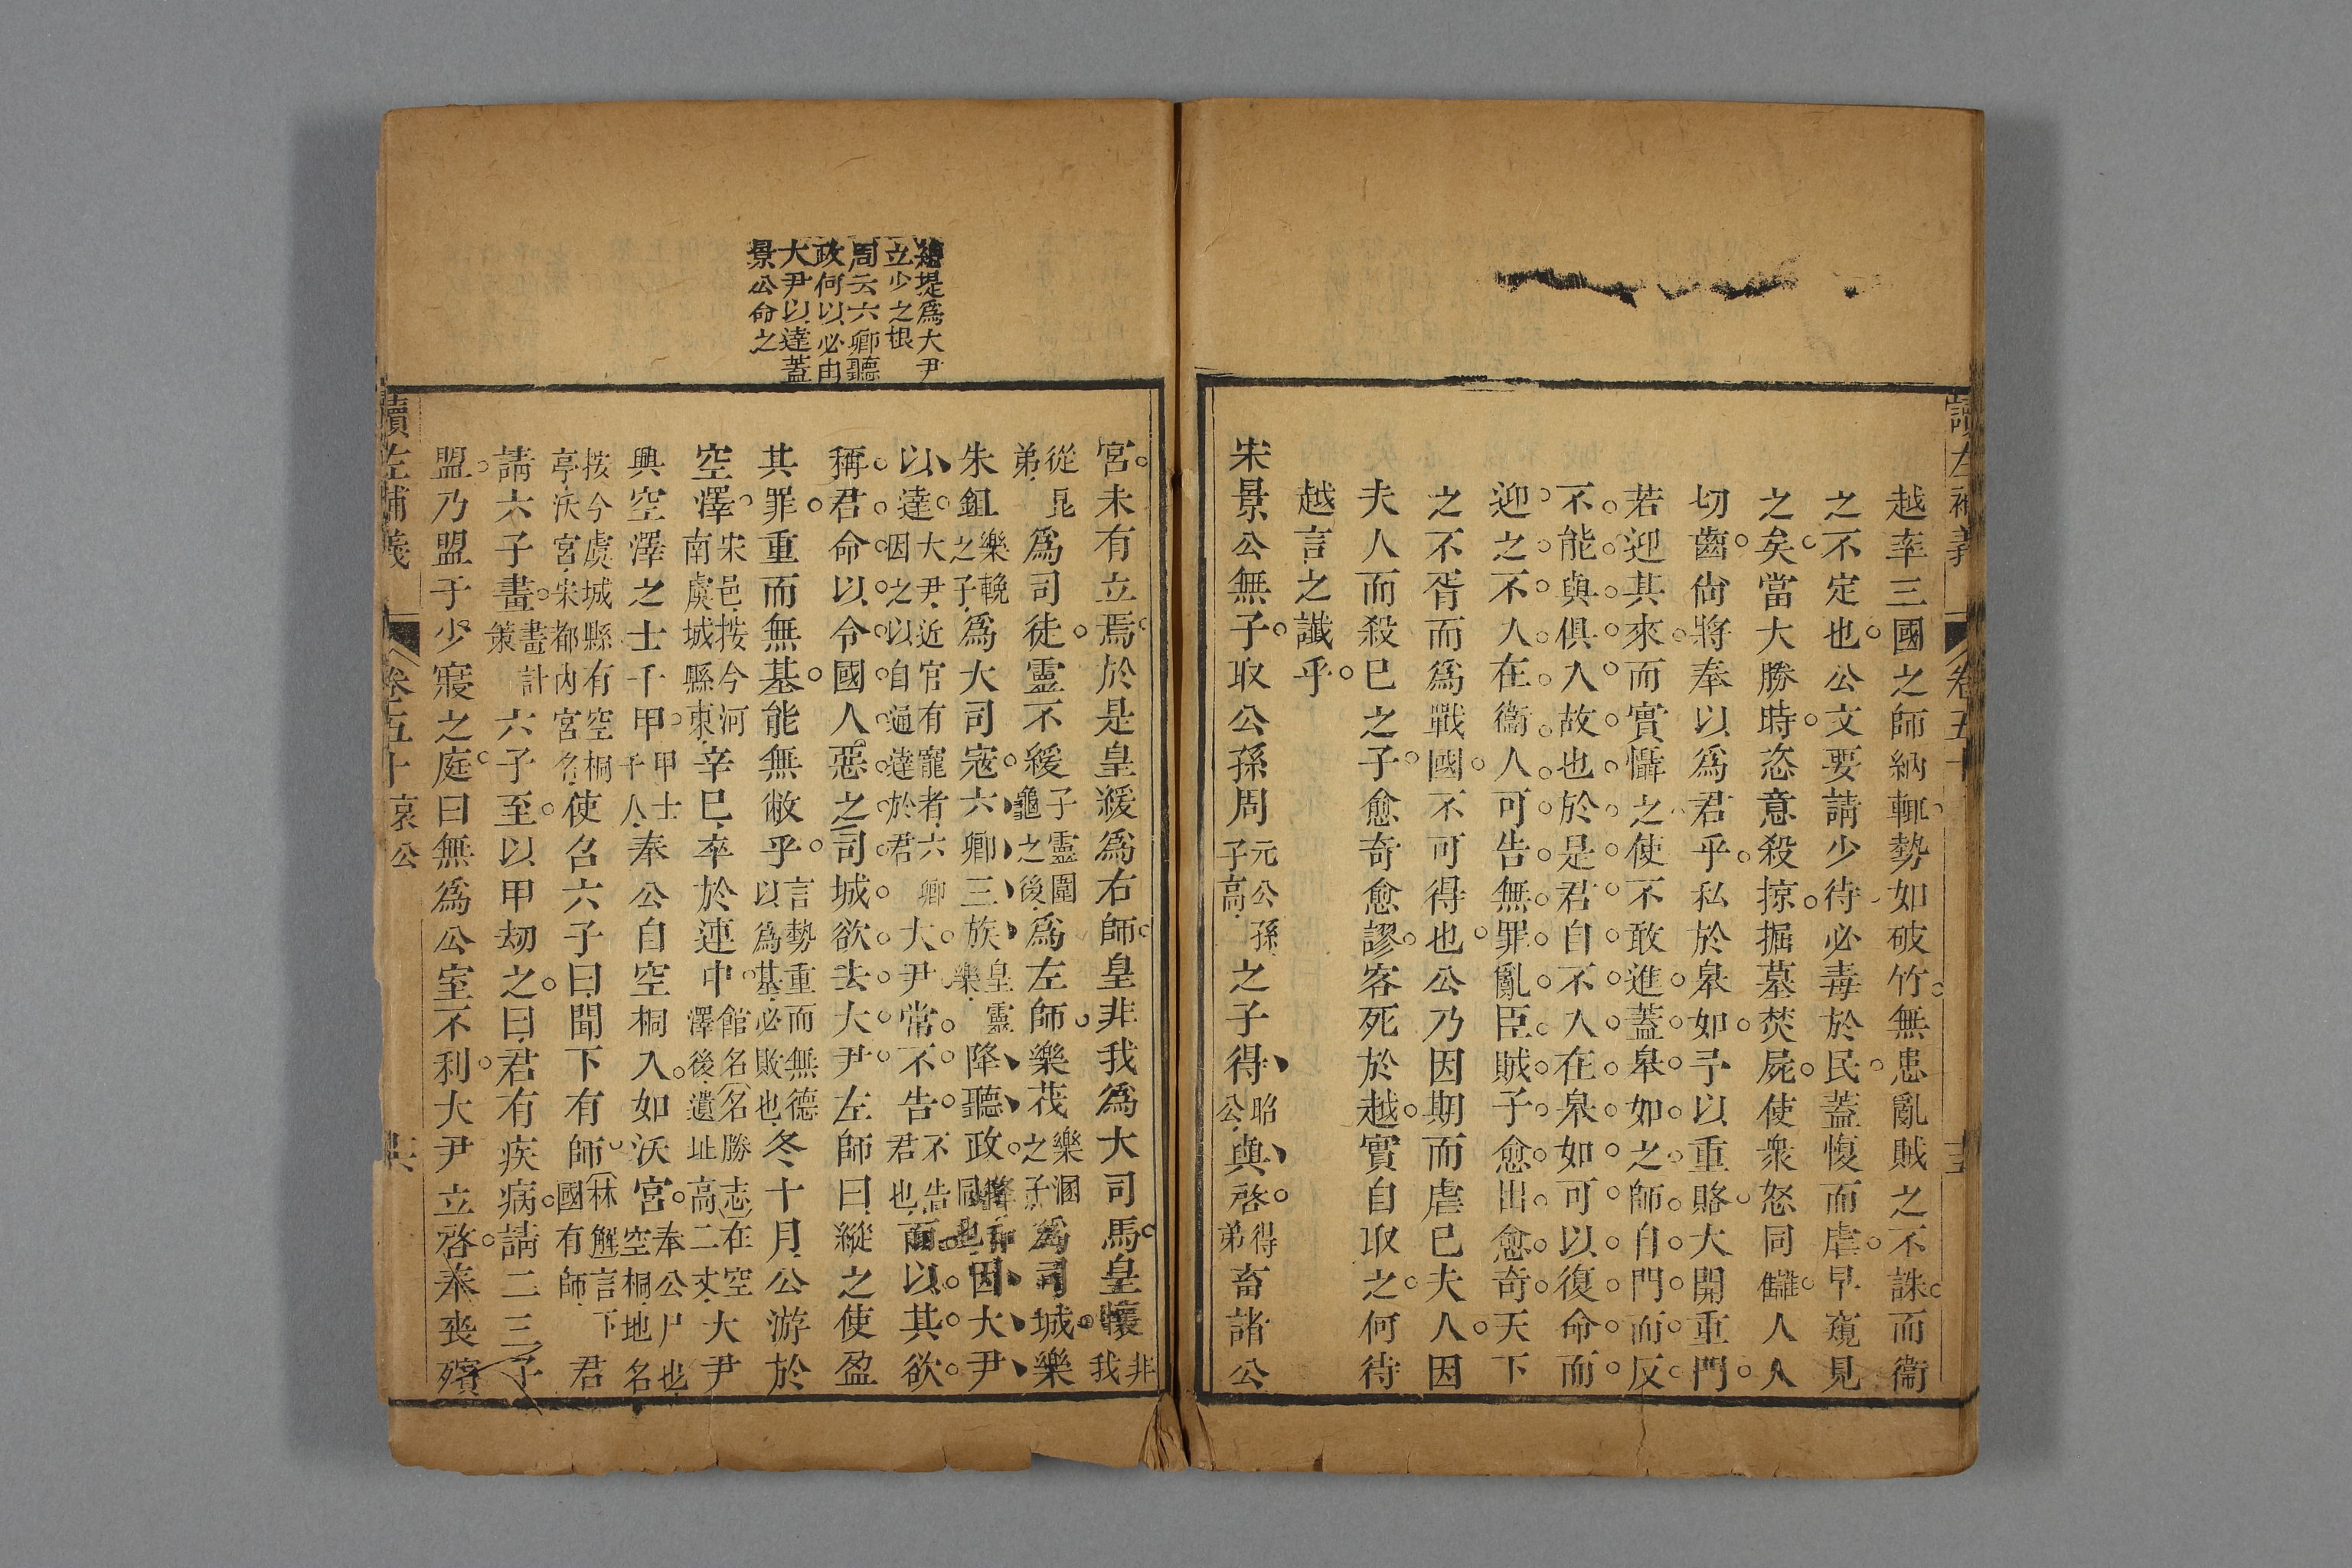 讀左補義 卷五十 十五
越率三國之師納輒勢如破竹無患亂賊之不誅而衞
之不定也公文要請少待必毒於民蓋愎而虐早窺見
之矣當大勝時恣意殺掠掘墓焚屍使衆怒同讎人人
切齒尙將奉以爲君乎私於皋如予以重賂大開重門
若迎其來而實懾之使不敢進蓋皋如之師自門而反
不能與俱入故也於是君自不入在皋如可以復命而
迎之不入在衞人可告無罪亂臣賊子愈出愈奇天下
之不胥而爲戰國不可得也公乃因期而虐巳夫人因
夫人而殺巳之子愈奇愈謬客死於越實自取之何待
越言之讖乎
宋景公無子取公孫周元公孫子高之子得昭公與啓得弟畜諸公
總提爲大尹
立少之根
周云六卿聽
政何以必由
大尹以達蓋
景公命之
宮未有立焉於是皇緩爲右師皇非我爲大司馬皇懷非我
從昆弟爲司徒靈不緩子靈圍龜之後爲左師樂茷樂溷之子爲司城樂
朱鉏樂輓之子爲大司寇六卿三族皇靈樂降聽政降和同也因大尹
以達大尹近官有寵者六卿因之以自通達於君大尹常不告不告君也而以其欲
稱君命以令國人惡之司城欲去大尹左師曰縱之使盈
其罪重而無基能無敝乎言勢重而無德以爲基必敗也冬十月公游於
空澤宋邑按今河南虞城縣東辛巳卒於連中館名名勝志在空澤後遺址高二丈大尹
興空澤之士千甲甲士千人奉公自空桐入如沃宮奉公尸也空桐地名
按今虞城縣有空桐亭沃宮宋都內宮名使召六子曰聞下有師林解言下國有師君
請六子畫畫計策六子至以甲刼之曰君有疾病請二三子
盟乃盟于少寢之庭曰無爲公室不利大尹立啓奉喪殯
讀左補義 卷五十 哀公